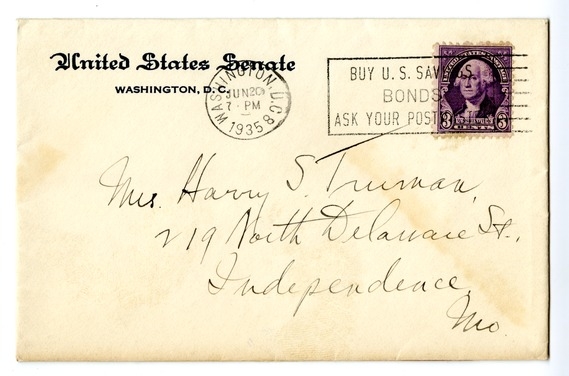 United States Senate
WASHINGTON, D.C.
WASHINGTON, D.C. 8
JUN 20
7 - PM
1935
BUY U.S. SAVINGS
BONDS
ASK YOUR POST
UNITED STATES POSTAGE
3 3
CENTS
Mrs. Harry S. Truman,
219 North Delaware St.,
Independence,
Mo.